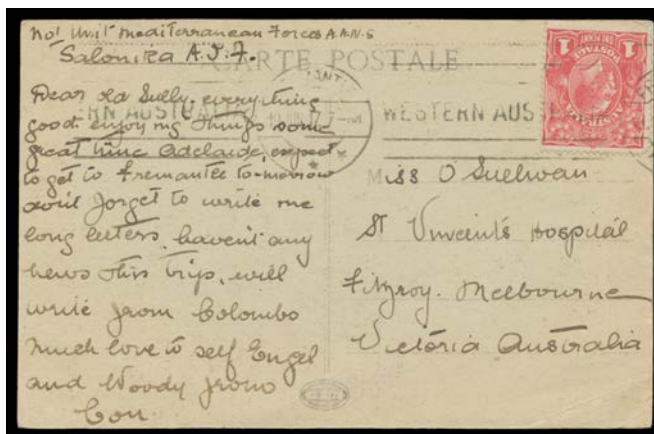 No 1 Unit Mediterranean Forces A.A.N.S
Salonika A.I.F.
CARTE POSTALE
Dear old Sully, everything
good. enjoying things some
great time Adelaide, expect
to get to Fremantle to-morrow
don't forget to write me
long letters, haven't any
news this trip, will
write from Colombo
much love to self Engel
and Woody from
Con.
WESTERN AUS
Miss O'Sullivan
St Vincent's Hospital
Fitzroy. Melbourne
Victoria Australia
AUSTRALIA
POSTAGE
ONE PENNY
1 1